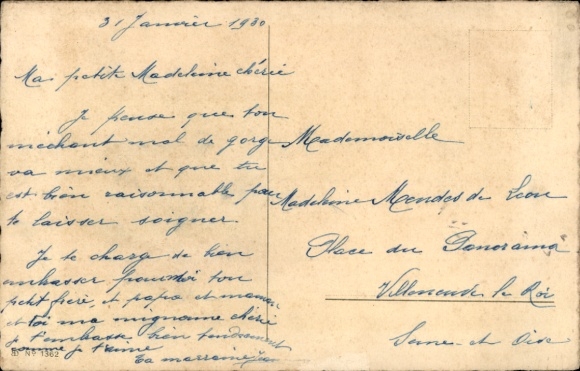 31 Janvier 1930
Ma petite Madeleine chérie
Je pense que ton
méchant mal de gorge
va mieux et que tu
est bien raisonnable pour
te laisser soigner.
Je te charge de bien
embrasser pour moi ton
petit frère, et papa et maman
et toi ma mignonne chérie
je t'embrasse bien tendrement
comme je t'aime
Ta marraine
Nº 1362
Mademoiselle
Madeleine Mendes de Leon
Place du Panorama
Villeneuve le Roi
Seine et Oise